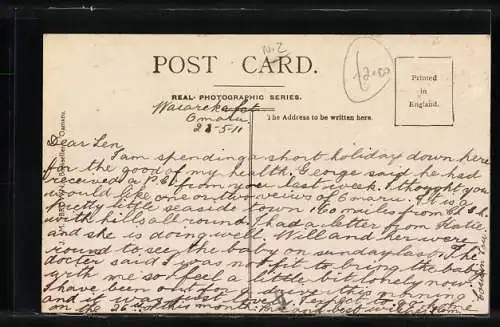 N.Z
POST CARD.
12.00
REAL PHOTOGRAPHIC SERIES.
Printed
in
England.
The Address to be written here.
Oamaru
23-5-11
Dear Len,
I am spending a short holiday down here
for the good of my health. George said he had
received the £1 from you last week. I thought you
would like one or two veiws of Oamaru. It is a
pretty little seaside town 150 miles from Ch.Ch.
with hills all round. I had a letter from Katie
and she is doing well. Will and her were
round to see the baby on sunday last. The
doctor said I was not fit to bring the baby
with me so I feel a little bit lonely now.
I have been out for a drive this morning
and it was just lovely. I expect to go home
on the 26th of this month. and best wishes from